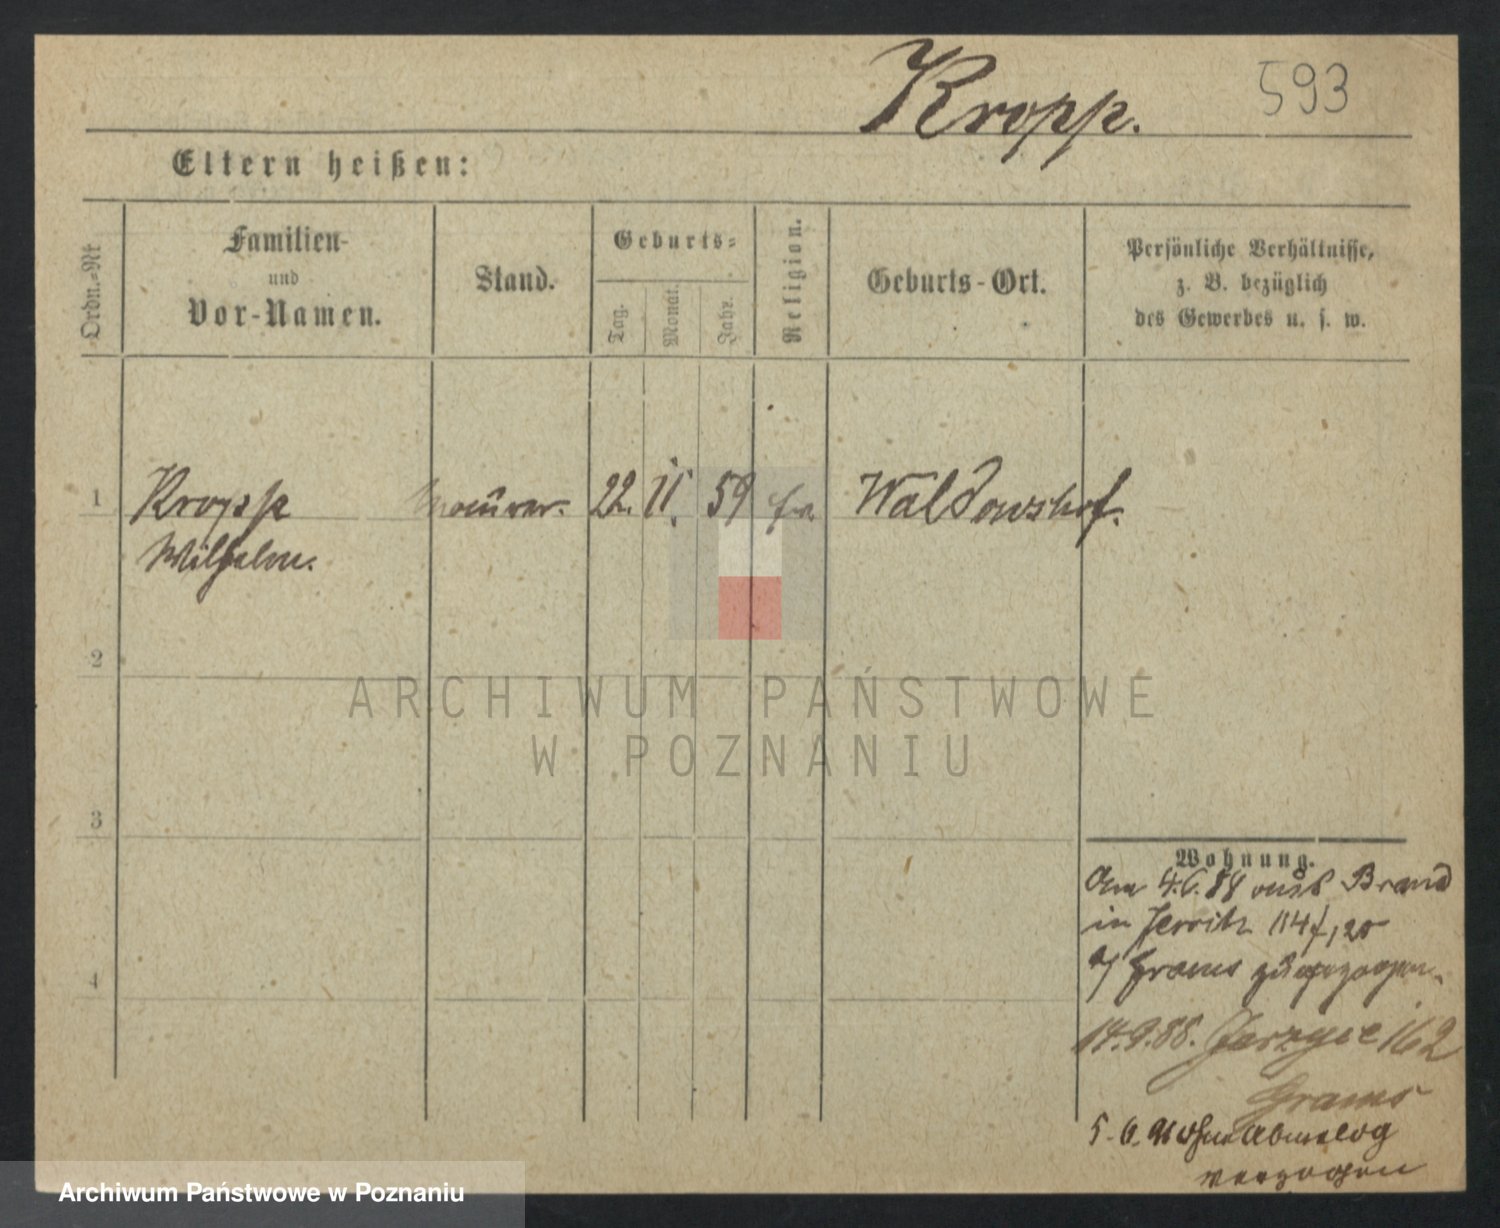 Kropp.
593
Eltern heißen:
Ordn.-Nr.
Familien-
und
Vor-Namen.
Stand.
Geburts-
Tag.
Monat.
Jahr.
Religion.
Geburts-Ort.
Persönliche Verhältnisse,
z. B. bezüglich
des Gewerbes u. s. w.
1
Kropp
Wilhelm.
Maurer.
22.
11.
59
Waldowshof.
2
3
4
ARCHIWUM PAŃSTWOWE
W POZNANIU
Wohnung.
Am 4.6.88 Brand
in Jersitz 114
Grams zugezogen.
14.9.88. 162
Grams
5.6. ohne
verzogen
Archiwum Państwowe w Poznaniu